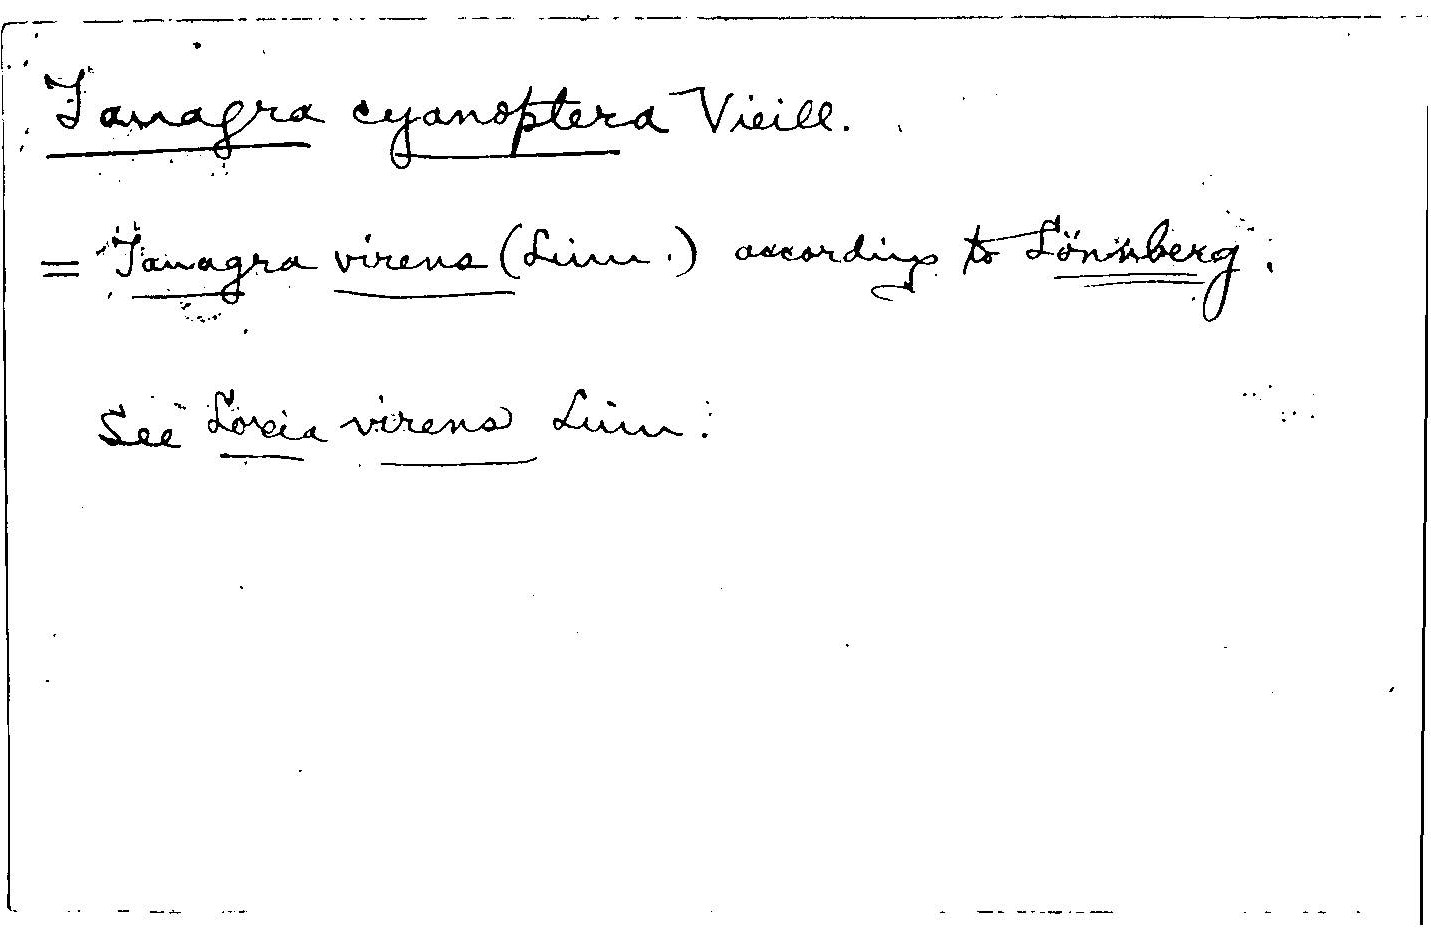 Tanagra cyanoptera Vieill.
= Tanagra virens (Linn.) according to Lönnberg.
See Loxia virens Linn.